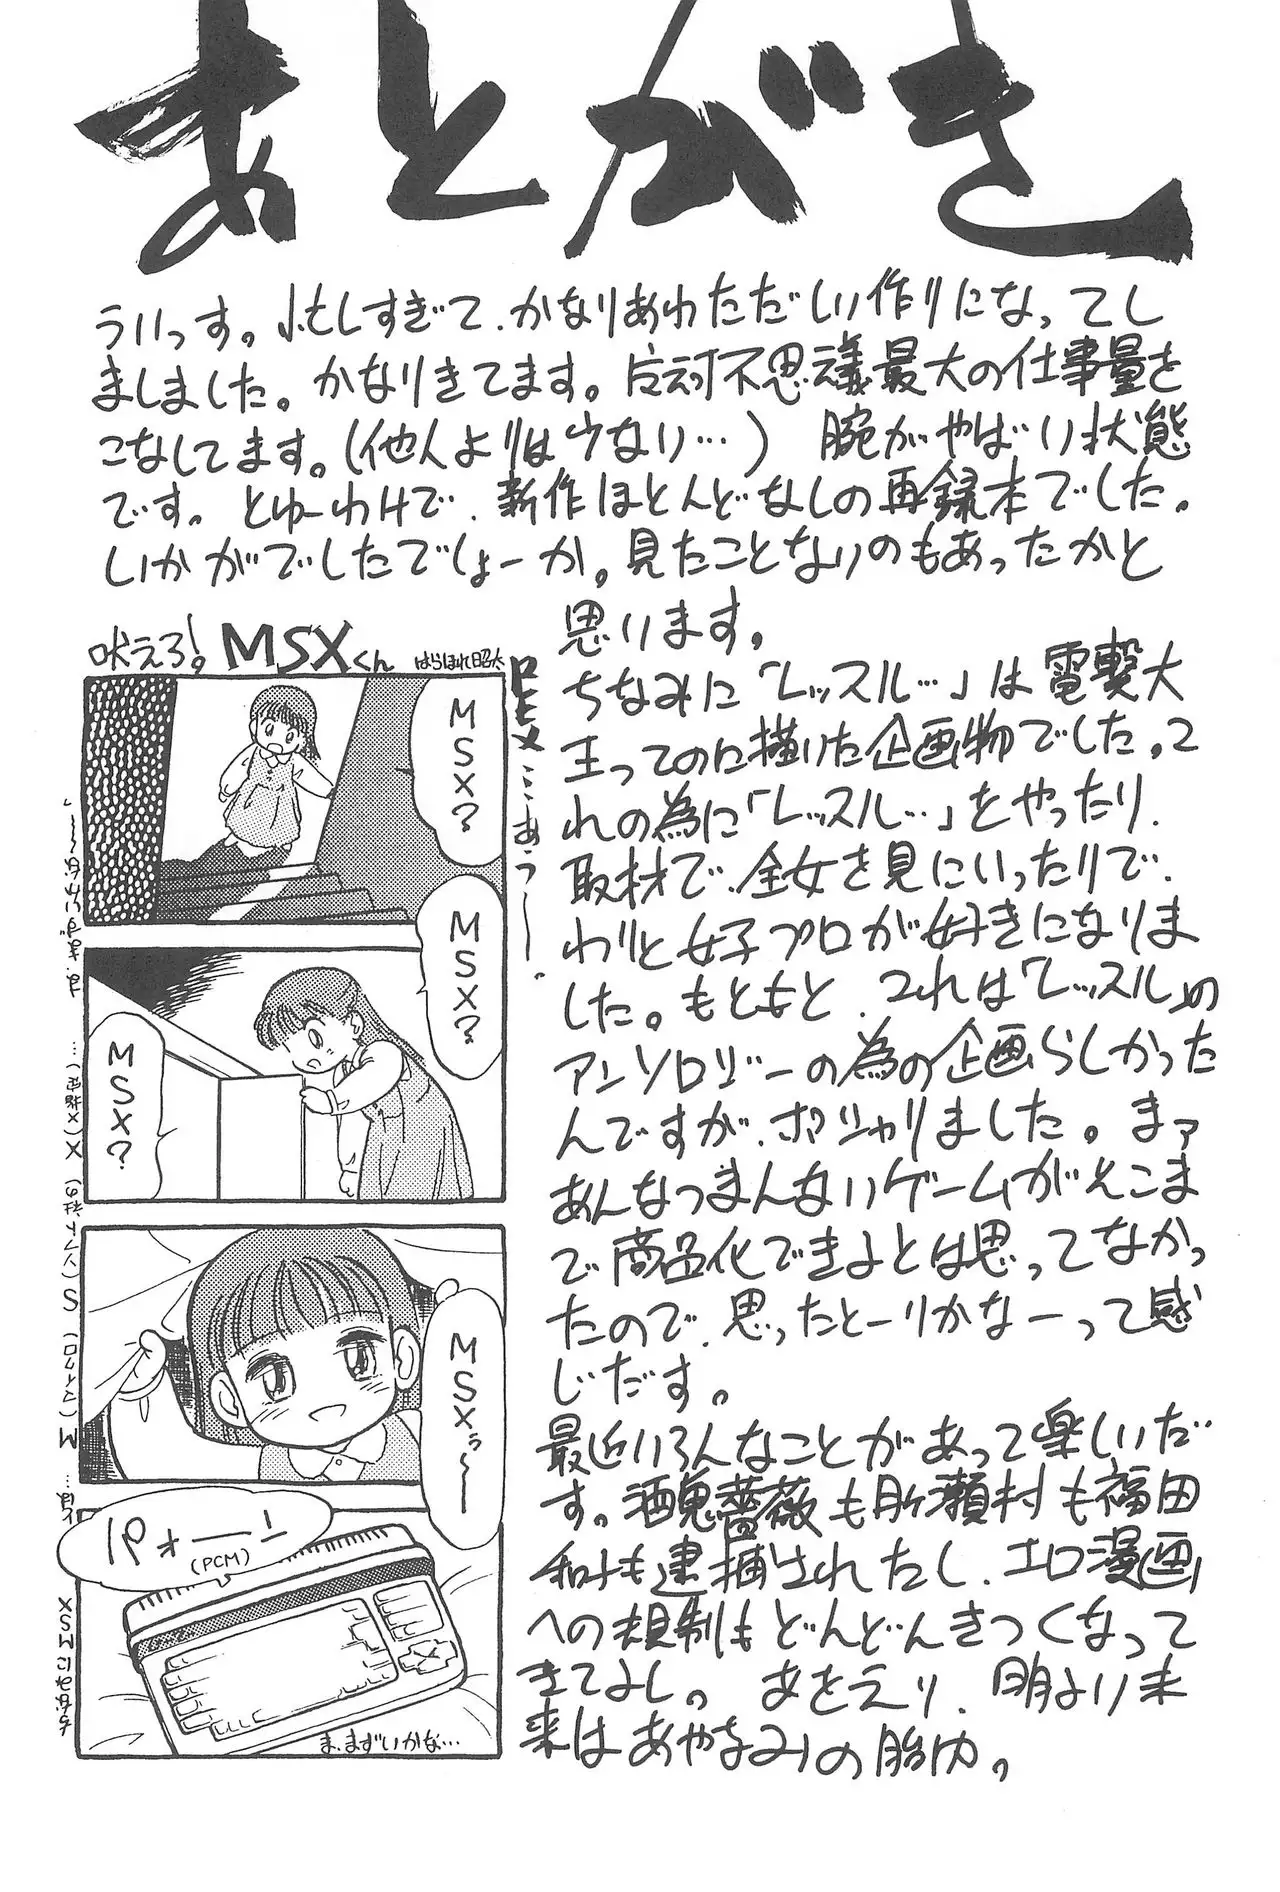 あとがき
ういっす。忙しすぎて、かなりあわただしい作りになってし
ましました。かなりきてます。反対不思議最大の仕事量を
こなしてます。(他人よりは少ない…) 腕がやばい状態
です。とゆーわけで、新作ほとんどなしの再録本でした。
いかがでしたでしょーか。見たことないのもあったかと
思います。
ちなみに「レッスル…」は電撃大
王ってのに描いた企画物でした。こ
れの為に「レッスル…」をやったり、
取材で、全女を見にいったりで、
わりと女子プロが好きになりま
した。もともと、これは「レッスル」の
アンソロジーの為の企画らしかった
んですが、ポシャりました。まァ
あんなつまんないゲームがそこま
で商品化できるとは思ってなかっ
たので、思ったとーりかなーって感
じだす。
最近いろんなことがあって楽しいだ
す。酒鬼薔薇も月ヶ瀬村も福田
和子も逮捕されたし、エロ漫画
への規制もどんどんきつくなって
きてよし。あとをえり、明より未
来はあやなみの胎内。
吠えろ!MSXくん
はらほれ昭太
MSX?
MSX?
MSX?
MSXぅ〜
パォーーェ
(PCM)
ま、まずいかな…